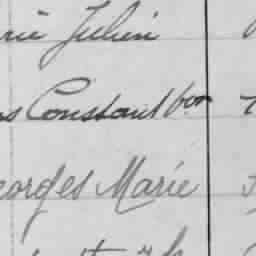 rie Julien
s Constant bon
eorges Marie